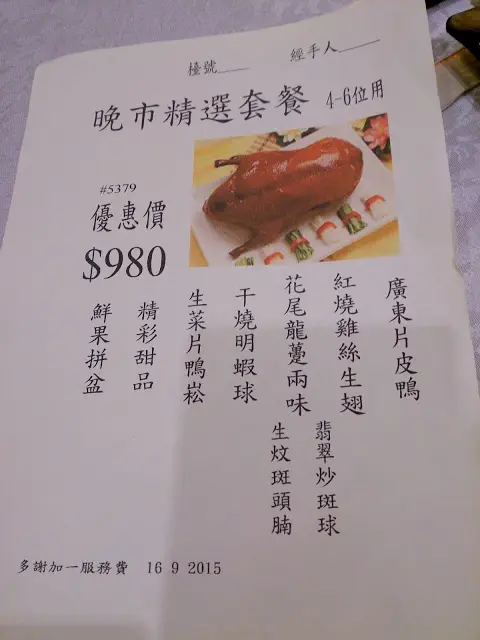 檯號____
經手人____
晚市精選套餐 4-6位用
#5379
優惠價
$980
廣東片皮鴨
紅燒雞絲生翅
花尾龍躉兩味
翡翠炒斑球
生炆斑頭腩
干燒明蝦球
生菜片鴨崧
精彩甜品
鮮果拼盆
多謝加一服務費 16 9 2015